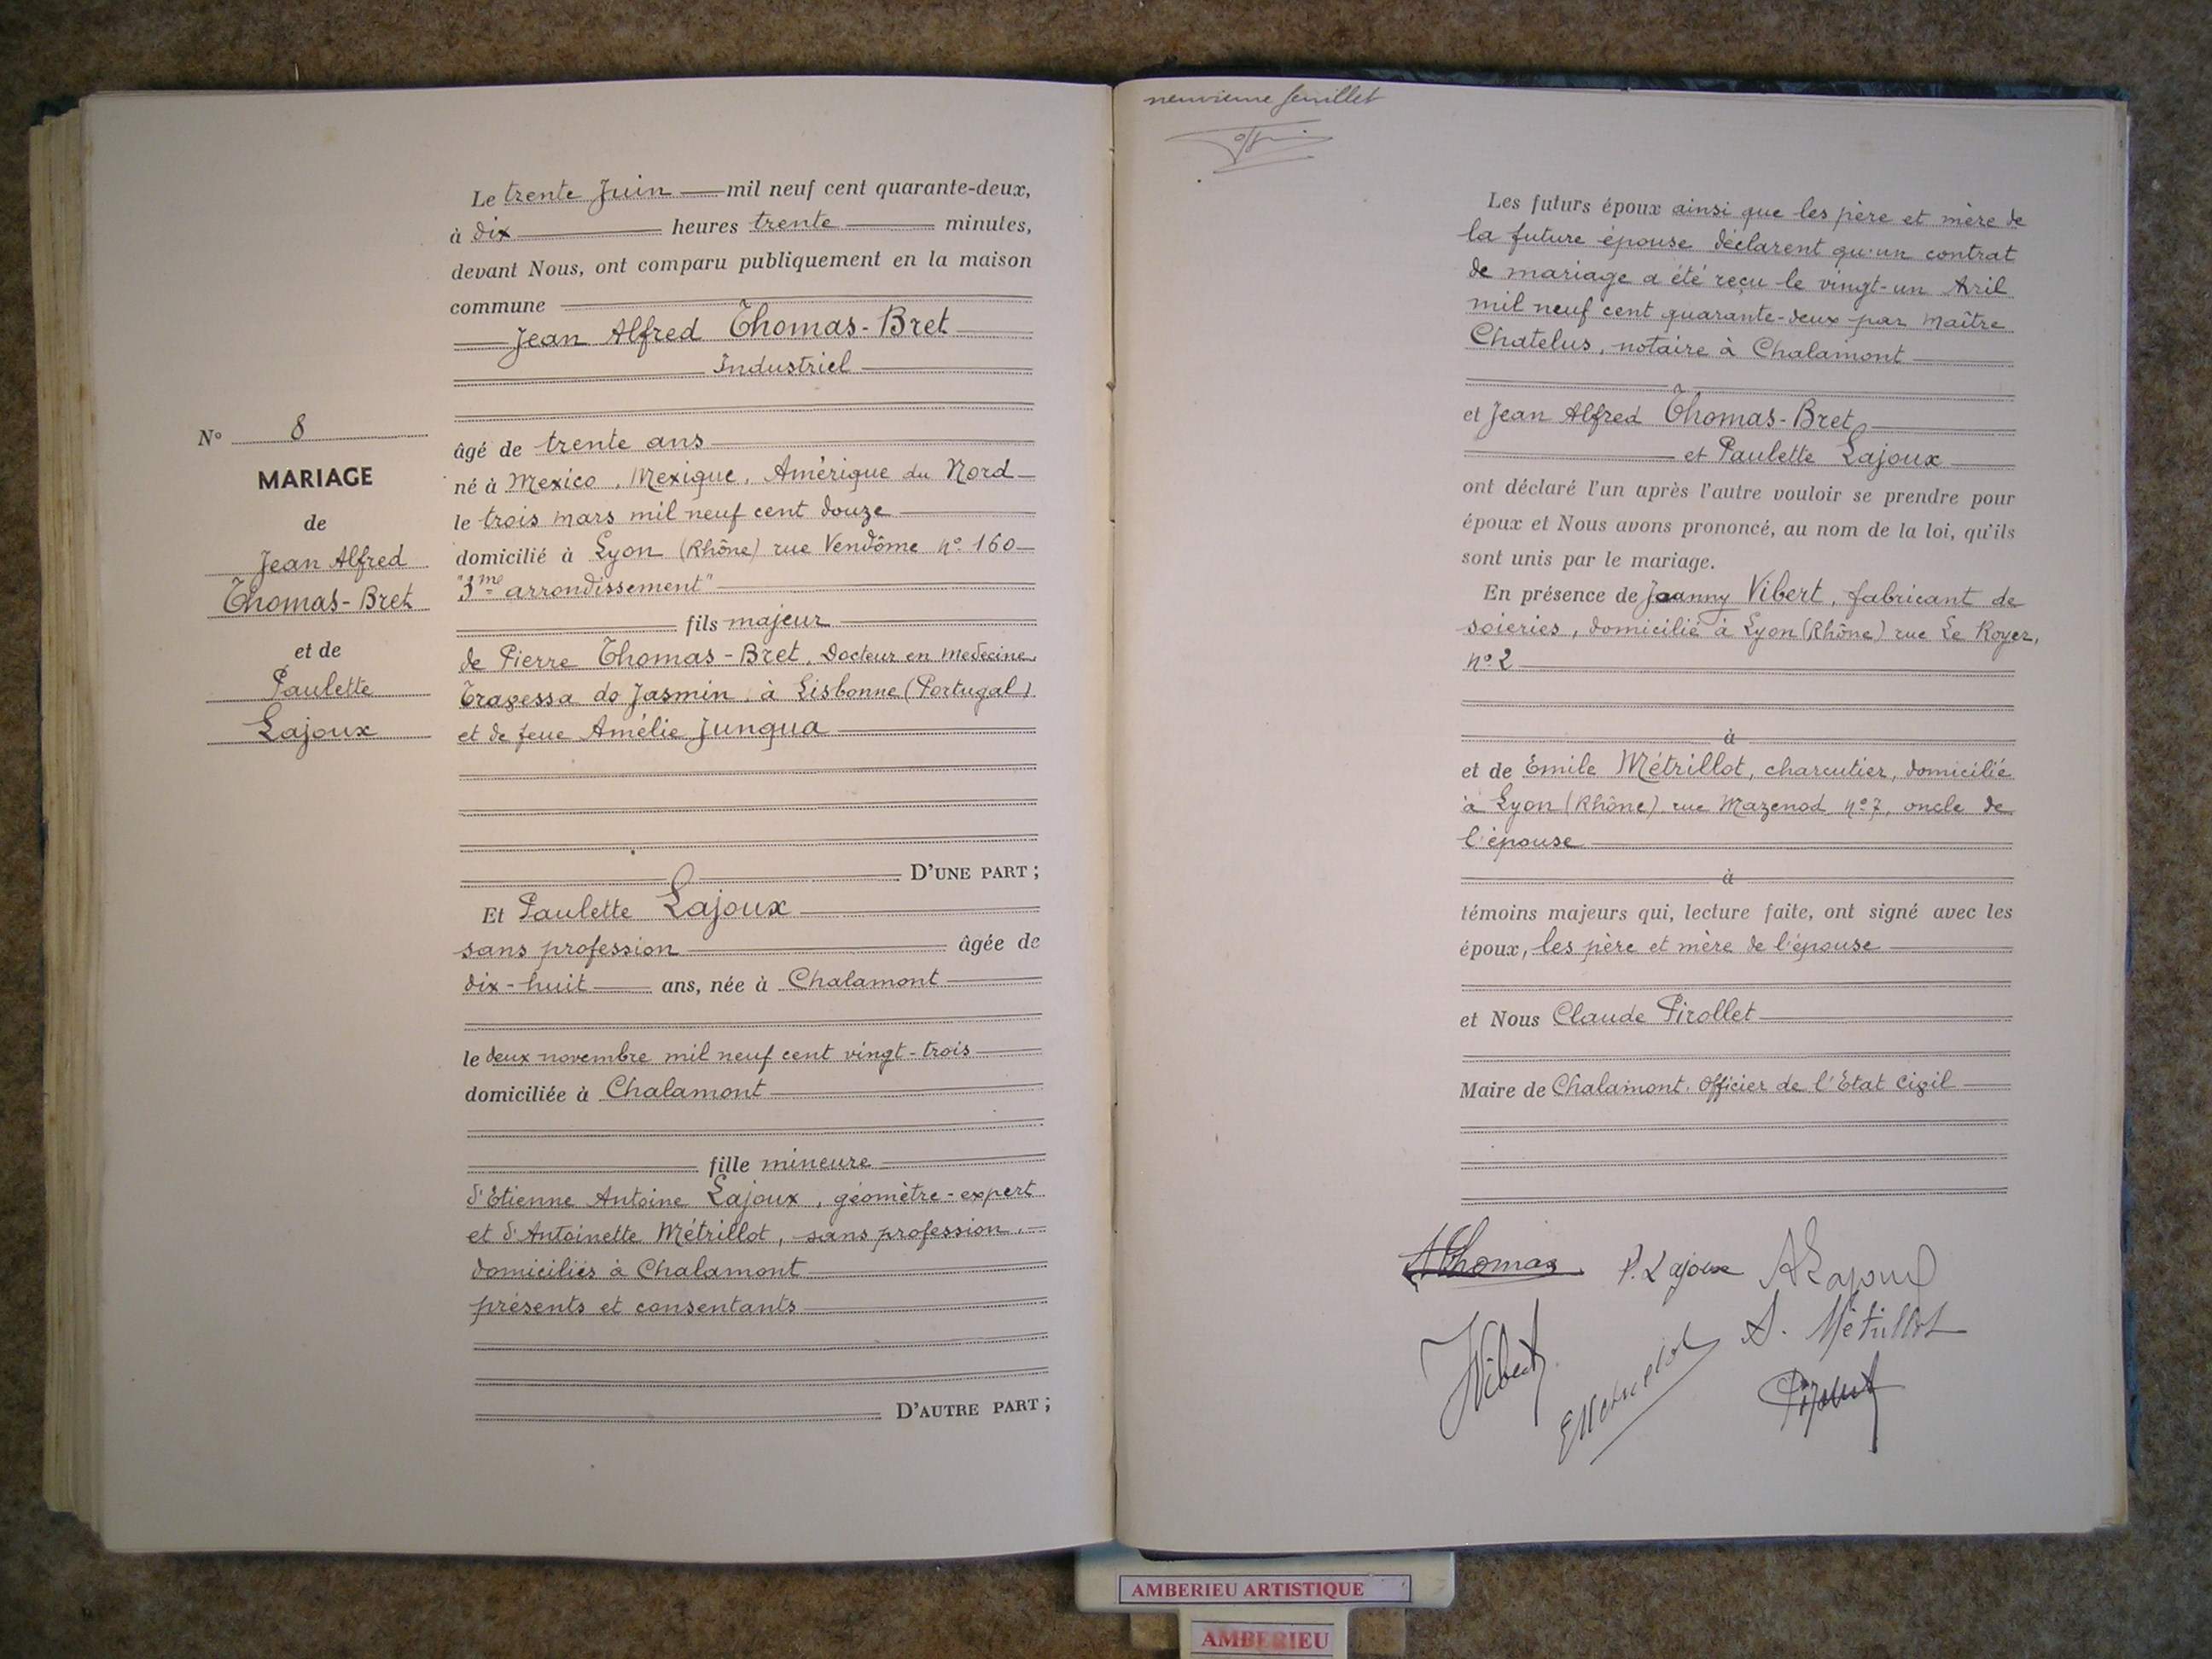 N° 8
MARIAGE
de
Jean Alfred
Thomas-Bret
et de
Paulette
Lajoux
Le trente Juin mil neuf cent quarante-deux,
à dix heures trente minutes,
devant Nous, ont comparu publiquement en la maison
commune
Jean Alfred Thomas-Bret
Industriel
âgé de trente ans
né à Mexico, Mexique, Amérique du Nord
le trois mars mil neuf cent douze
domicilié à Lyon (Rhône) rue Vendôme n° 160
"3me arrondissement"
fils majeur
de Pierre Thomas-Bret, Docteur en medecine,
Travessa do Jasmin, à Lisbonne (Portugal)
et de feue Amélie Junqua
D'UNE PART ;
Et Paulette Lajoux
sans profession âgée de
dix-huit ans, née à Chalamont
le deux novembre mil neuf cent vingt-trois
domiciliée à Chalamont
fille mineure
d'Etienne Antoine Lajoux, géomètre-expert
et d'Antoinette Métrillot, sans profession,
domiciliés à Chalamont
présents et consentants
D'AUTRE PART ;
neuvieme feuillet
Les futurs époux ainsi que les père et mère de
la future épouse déclarent qu'un contrat
de mariage a été reçu le vingt-un Aril
mil neuf cent quarante-deux par maître
Chatelus, notaire à Chalamont
et Jean Alfred Thomas-Bret
et Paulette Lajoux
ont déclaré l'un après l'autre vouloir se prendre pour
époux et Nous avons prononcé, au nom de la loi, qu'ils
sont unis par le mariage.
En présence de Joanny Vibert, fabricant de
soieries, domicilié à Lyon (Rhône) rue Le Royer,
n° 2
à
et de Emile Métrillot, charcutier, domicilié
à Lyon (Rhône), rue Mazenod n° 7, oncle de
l'épouse
à
témoins majeurs qui, lecture faite, ont signé avec les
époux, les père et mère de l'épouse
et Nous Claude Pirollet
Maire de Chalamont. Officier de l'Etat Civil
AThomas P. Lajoux ALajoux
JVibert EMétrillot A. Métrillot
Pirollet
AMBERIEU ARTISTIQUE
AMBERIEU